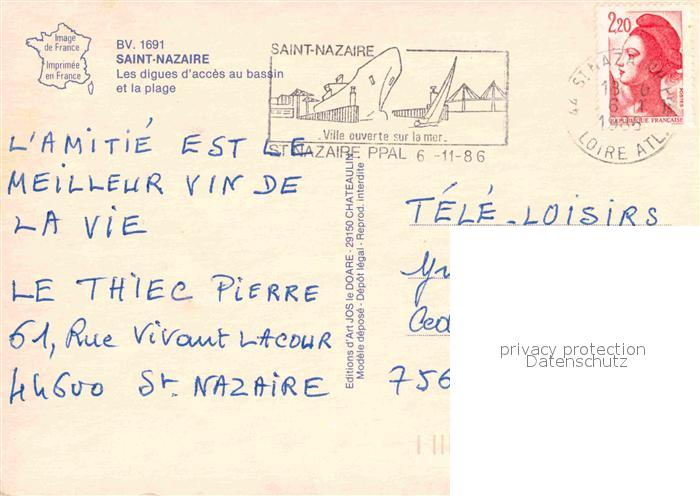 Image
de France
Imprimée
en France
BV. 1691
SAINT-NAZAIRE
Les digues d'accès au bassin
et la plage
SAINT-NAZAIRE
Ville ouverte sur la mer
ST NAZAIRE PPAL 6 -11-86
2,20
RÉPUBLIQUE FRANÇAISE
44 ST NAZAIRE
LOIRE ATL.
L'AMITIÉ EST LE
MEILLEUR VIN DE
LA VIE
LE THIEC PIERRE
61, Rue Vivant LACOUR
44600 St. NAZAIRE
Editions d'Art JOS le DOARE - 29150 CHATEAULIN
Modèle déposé - Dépôt légal - Reprod. interdite
TÉLÉ-LOISIRS
756
privacy protection
Datenschutz